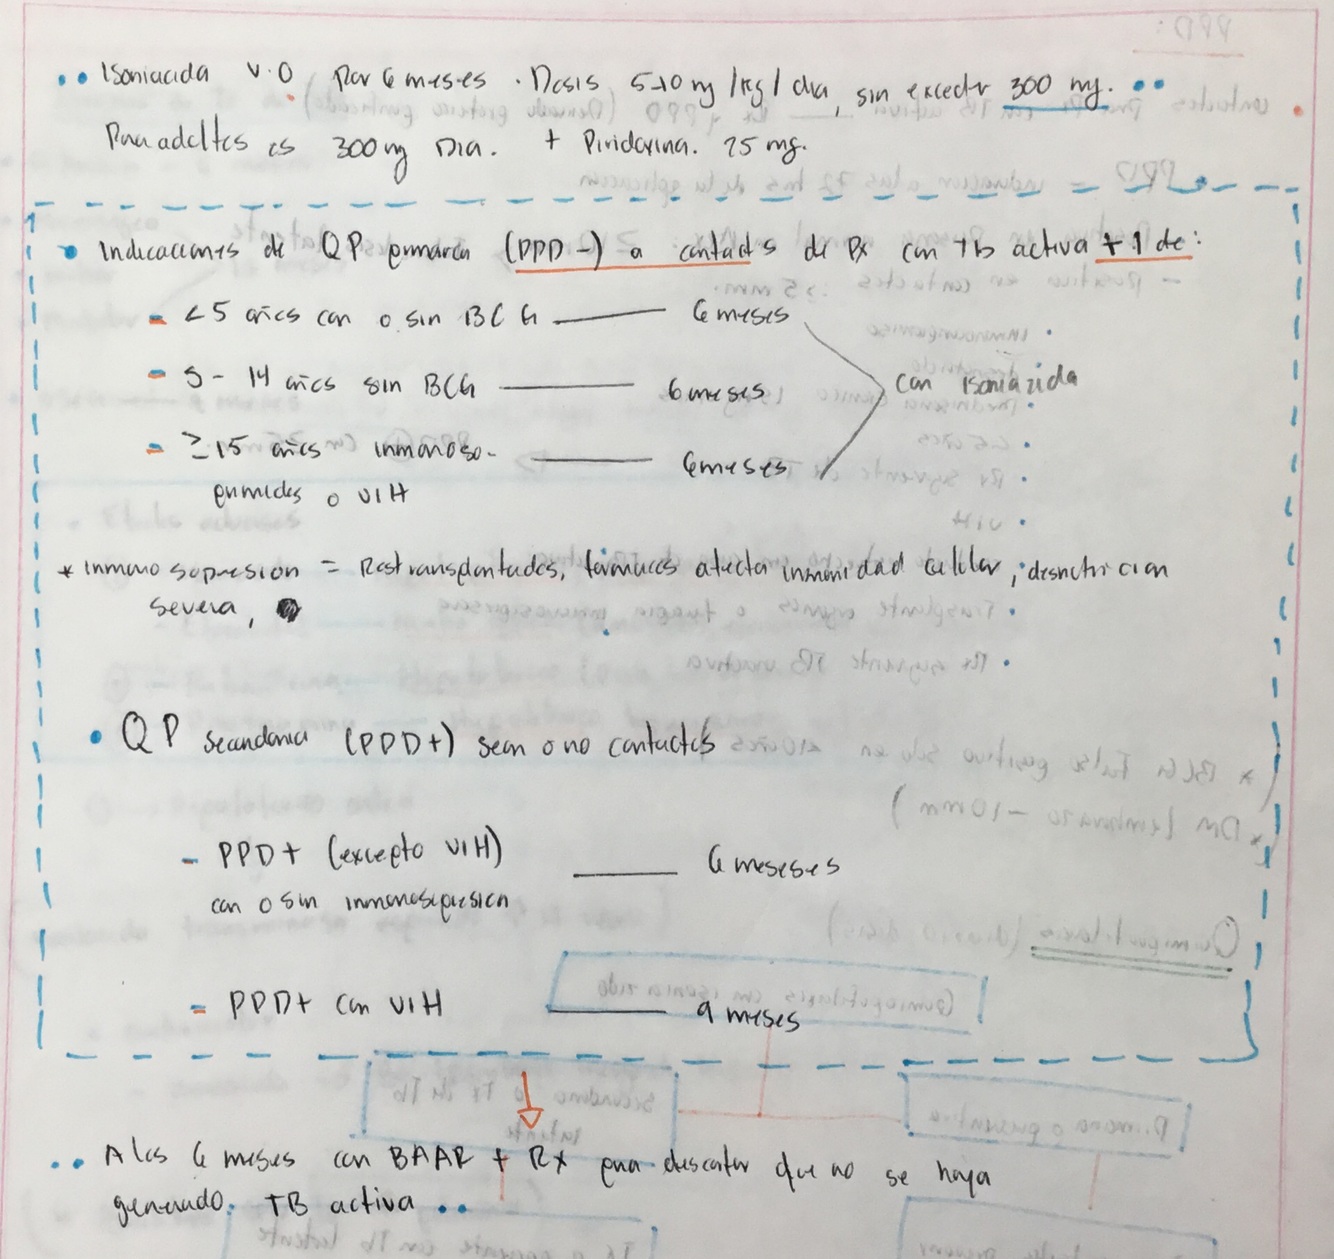 Isoniacida v.o por 6 meses. Dosis 5-10 mg/kg/dia, sin exceder 300 mg.
Para adultos es 300 mg Dia. + Piridoxina. 25 mg.
Indicaciones de QP primaria (PPD-) a contacts de Px con tb activa +1 de:
- <5 años con o sin BCG — 6 meses
- 5-14 años sin BCG — 6 meses
con isoniazida
- ≥15 años inmunoso- — 6 meses
primidos o VIH
* inmuno supresion = Postransplantados, fármacos afecta inmunidad celular, desnutricion
severa,
• QP secundaria (PPD+) sean o no contactos
- PPD+ (excepto VIH) — 6 meseses
con o sin inmunosupresion
= PPD+ con VIH — 9 meses
A los 6 meses con BAAR + RX para descartar que no se haya
generado. TB activa